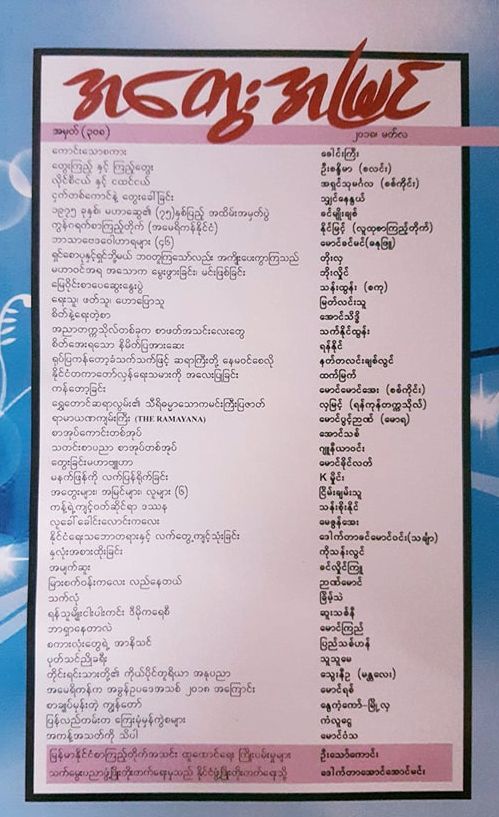 အတွေးအမြင်
အမှတ် (၃၀၈) ၂၀၁၈၊ မတ်လ
ကောင်းသောစကား ခေါင်းကြီး
တွေးကြည့် နှင့် ကြည့်တွေး ဦးစန္ဒိမာ (စလင်း)
လိုင်စီငယ် နှင့် ငထင်ငယ် အရှင်သုမင်္ဂလ (စစ်ကိုင်း)
ငှက်တစ်ကောင်နဲ့ တွေးခေါ်ခြင်း သျှင်နေနွယ်
၁၉၇၅ ခုနှစ်၊ မဟာဆွေ၏ (၇၅)နှစ်ပြည့် အထိမ်းအမှတ်ပွဲ ခင်မျိုးချစ်
ကွန်ဂရက်စာကြည့်တိုက် (အမေရိကန်နိုင်ငံ) နိုင်မြင့် (လူထုစာကြည့်တိုက်)
ဘာသာဗေဒဝေါဟာရများ (၄၆) မောင်ခင်မင်(ဓနုဖြူ)
ရှင်စောပုနှင့်ရှင်ဘို့မယ် ဘဝတူကြသော်လည်း အကျိုးပေးကွာကြသည် တိုးလှ
မဟာဝင်အရ အသောက မွေးဖွားခြင်း၊ မင်းဖြစ်ခြင်း ဘိုးလှိုင်
မြေပိုင်းစာပေဆွေးနွေးပွဲ သန်းထွန်း (စကု)
ရေးသူ၊ ဖတ်သူ၊ ဟောပြောသူ မြတ်လင်းသူ
စိတ်နဲ့ရေးတဲ့စာ အောင်သိဒ္ဓိ
အညာတက္ကသိုလ်တစ်ခုက စာဖတ်အသင်းလေးတွေ သက်နိုင်ထွန်း
စိတ်အေးရသော နိမိတ်ပြအားဆေး ရန်နိုင်
ရုပ်ပြကန်တော့ခံသက်သက်ဖြင့် ဆရာကြီးတို့ နေမဝင်စေလို နတ်တလင်းချစ်လွင်
နိုင်ငံတကာတော်လှန်ရေးသမားကို အလေးပြုခြင်း ထက်မြက်
ကန်တော့ခြင်း မောင်မောင်အေး (စစ်ကိုင်း)
ရွှေတောင်ဆရာလွမ်း၏ သီရိဓမ္မာသောကမင်းကြီးပြဇာတ် လှမြင့် (ရန်ကုန်တက္ကသိုလ်)
ရာမာယဏကျမ်းကြီး (THE RAMAYANA) မောင်ပွင့်ညဏ် (မောရ)
စာအုပ်ကောင်းတစ်အုပ် အောင်သစ်
သတင်းစာပညာ စာအုပ်တစ်အုပ် ဂျူနီယာဝင်း
တွေးခြင်းမဟာဗျူဟာ မောင်ခိုင်လတ်
မနက်ဖြန်ကို လက်ပြန်ရိုက်ခြင်း K မှိုင်း
အတွေးများ၊ အမြင်များ၊ လူများ (၆) ငြိမ်းချမ်းသူ
ကန့်ရဲ့ကျင့်ဝတ်ဆိုင်ရာ ဒဿန သန်းစိုးနိုင်
လူခေါ်ခေါင်းလောင်းကလေး မေဇွန်အေး
နိုင်ငံရေးသဘောတရားနှင့် လက်တွေ့ကျင့်သုံးခြင်း ဒေါက်တာခင်မောင်ဝင်း(သင်္ချာ)
နှလုံးအစားထိုးခြင်း ကိုသန်းလွင်
အမျက်ဆူး ခင်လှိုင်ကြူ
မြားစက်ဝန်းကလေး လည်နေတယ် ညဏ်မောင်
သက်လုံ ခြိမ့်သဲ
ရန်သူမျိုးငါးပါးကင်း ဒီမိုကရေစီ ဆူးသစ်နီ
ဘာရှာနေတာလဲ မောင်ကြည်
စကားလုံးတွေရဲ့ အာနိသင် ပြည်သစ်ဟန်
ပုတ်သင်ညိုခရီး သူသူမေ
တိုင်းရင်းသားတို့၏ ကိုယ်ပိုင်တူရိယာ အနုပညာ သွေးနီဥ (မန္တလေး)
အမေရိကန်က အခွန်ဥပဒေအသစ် ၂၀၁၈ အကြောင်း မောင်ရစ်
စာချုပ်မှန်းတဲ့ ကျွန်တော် နွေကဲ့ကော်-မြို့လှ
ပြန်လည်တမ်းတ ကြေးမုံမှန်ကွဲစများ ကံလူငွေ
အကန့်အသတ်ကို သိပါ မောင်ဝံသ
မြန်မာနိုင်ငံစာကြည့်တိုက်အသင်း ထူထောင်ရေး ကြိုးပမ်းမှုများ ဦးသော်ကောင်း
သက်မွေးပညာဖွံ့ဖြိုးတက်ရေးမှသည် နိုင်ငံဖွံ့ဖြိုးတိုးတတ်ရေးသို့ ဒေါက်တာအောင်အောင်မင်း